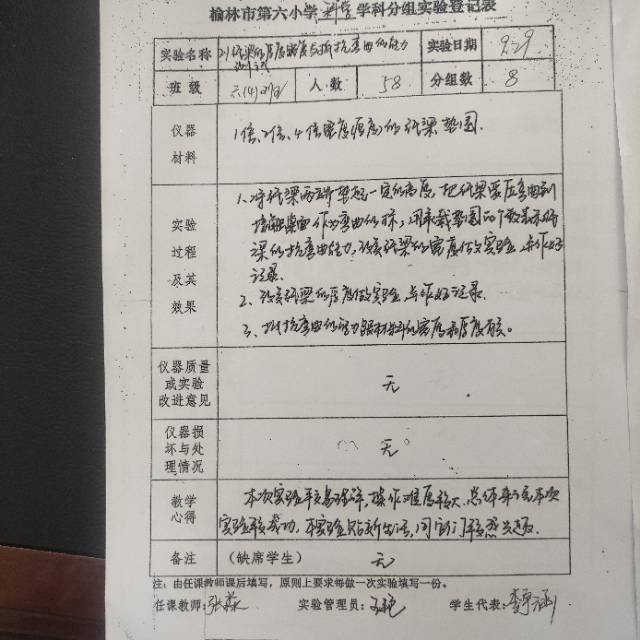 榆林市第六小学 科学 学科分组实验登记表
实验名称 测试纸梁的厚度宽度与抵抗弯曲的能力 实验日期 9.29
班级 六(4) 人数 58 分组数 8
仪器材料 1倍、2倍、4倍宽度(厚度)的纸梁 垫圈.
实验过程及其效果
1、将纸梁两端垫起一定的高度,把纸梁弯曲到
接触桌面作为弯曲的标,用来载垫圈的个数表示
梁的抗弯曲能力,改变纸梁的宽度做实验,并作好
记录.
2、改变纸梁的厚度做实验,并作好记录.
3、抵抗弯曲的能力跟材料的宽度和厚度有关。
仪器质量或实验改进意见 无
仪器损坏与处理情况 无
教学心得
本次实验,操作难度较大,总体来说本次
实验较成功,本实验贴近生活,同学们较感兴趣.
备注 (缺席学生) 无
注:由任课教师课后填写,原则上要求每做一次实验填写一份。
任课教师: 张 实验管理员: 学生代表: